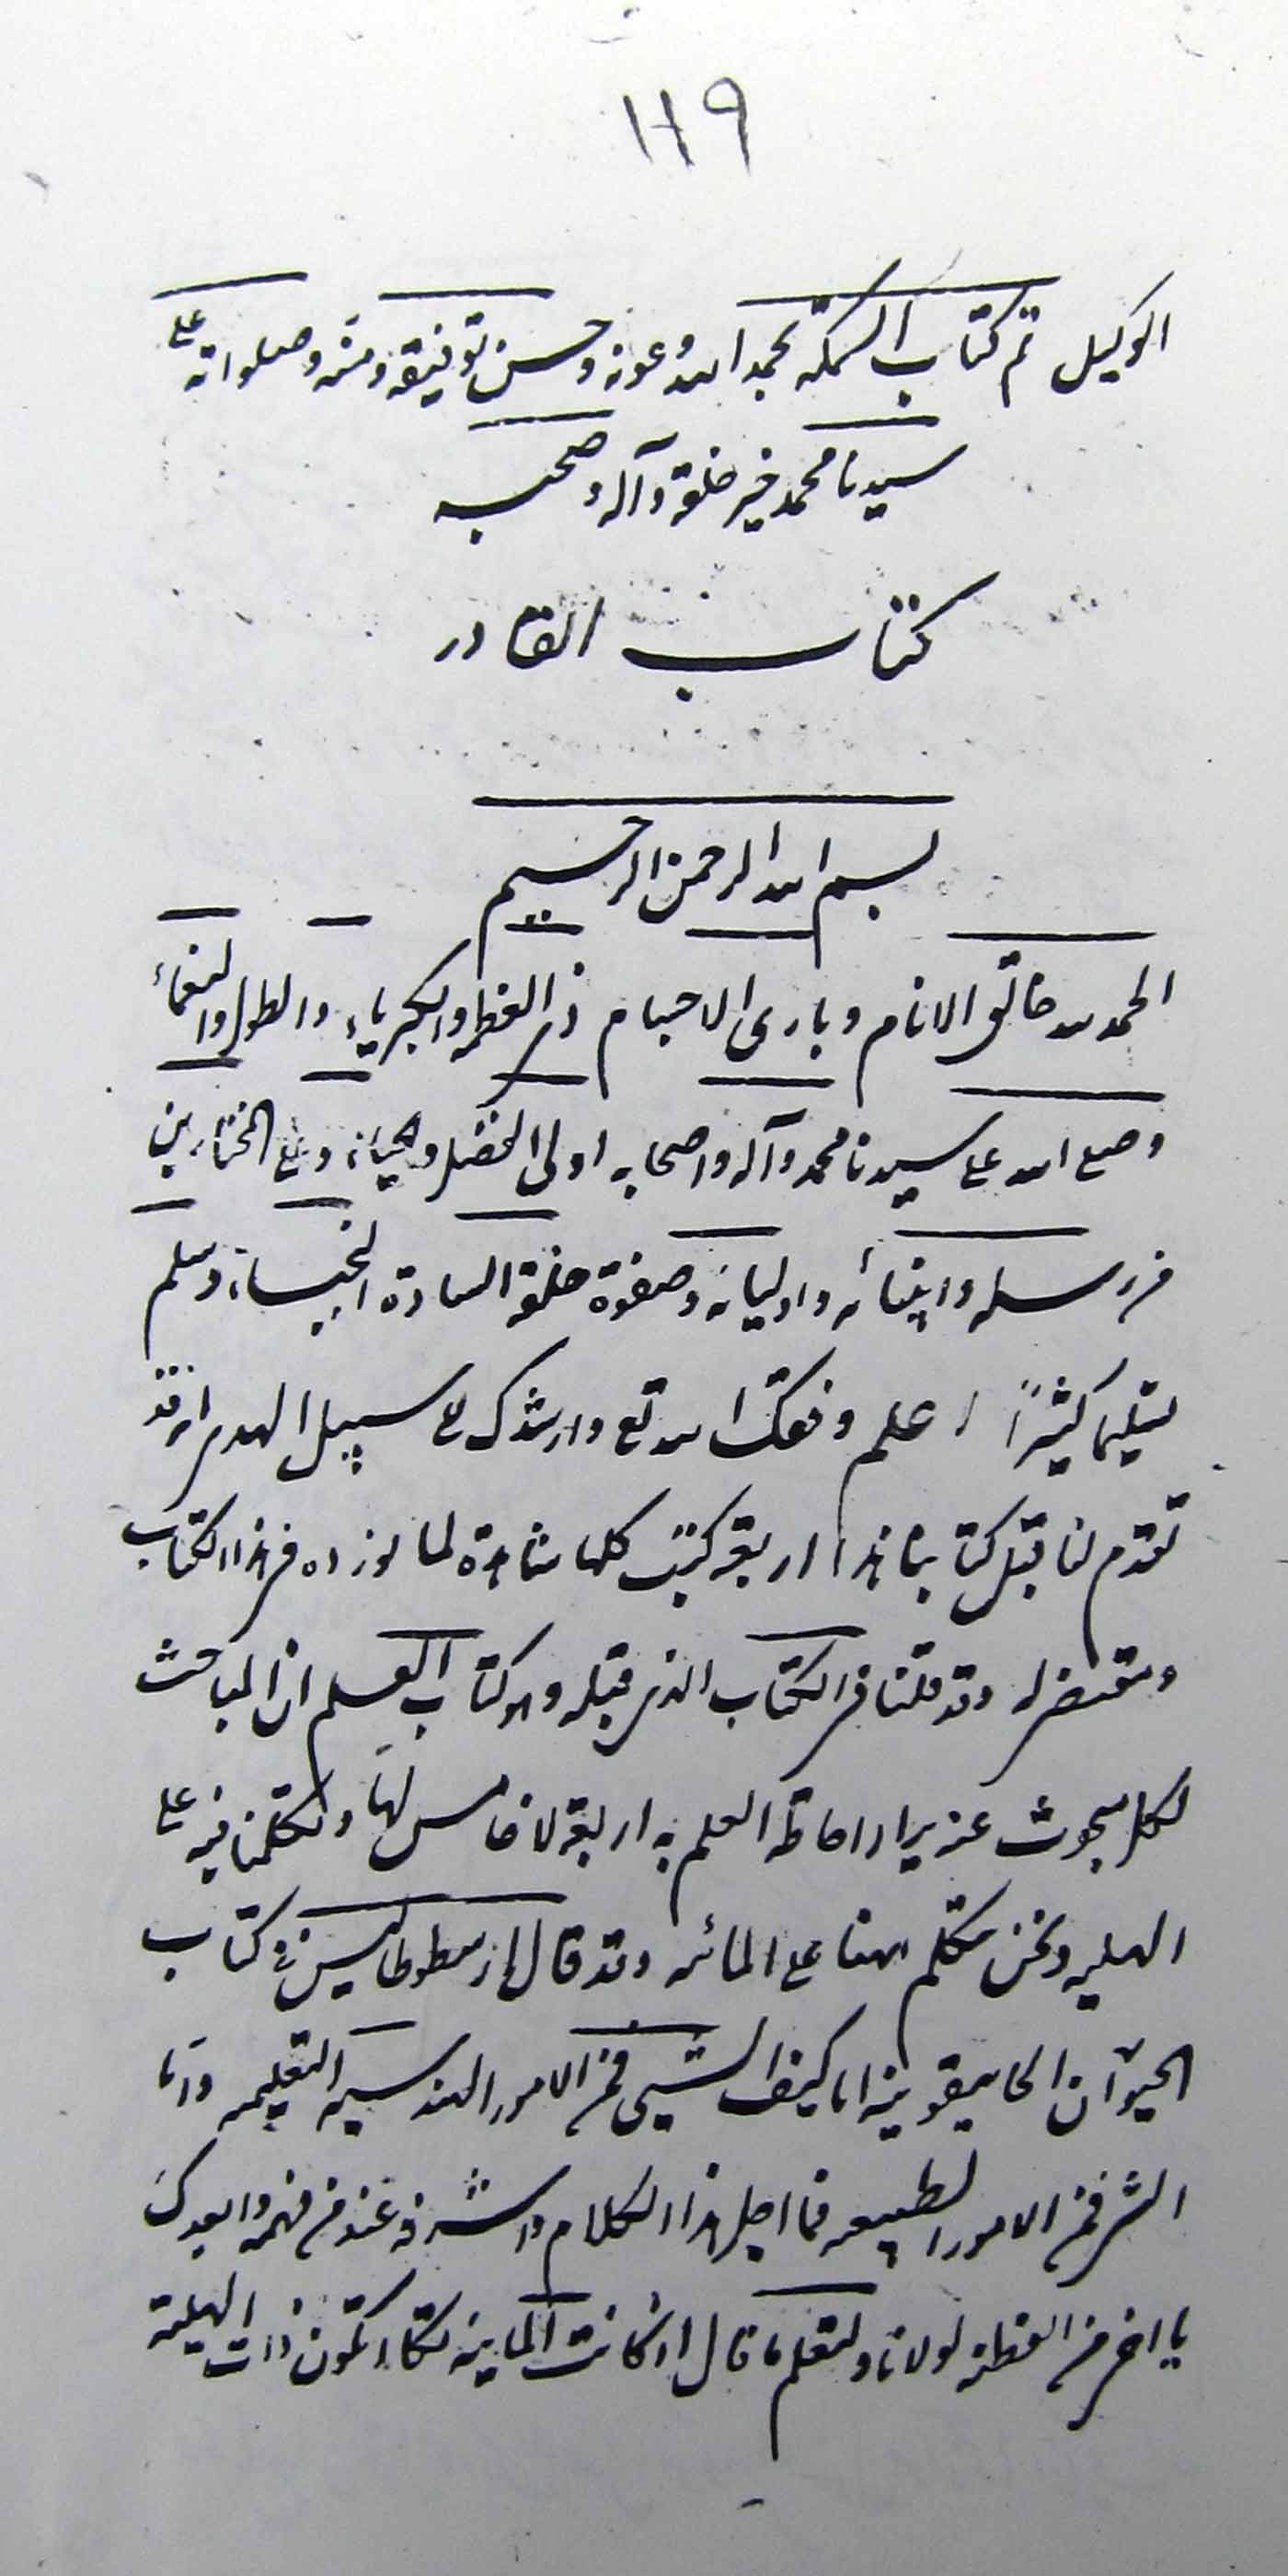 ١١٩
الوكيل تم كتاب السمكه بحمد الله وعونه وحسن توفيقه ومنه وصلواته على
سيدنا محمد خير خلقه وآله وصحبه
كتاب القادر
بسم الله الرحمن الرحيم
الحمد لله خالق الانام وبارى الاجسام ذى العظمه والكبرياء والطول والنعماء
وصلى الله على سيدنا محمد وآله واصحابه اولى الفضل والحياء وعلى المختارين
من رسله وانبيائه واوليائه وصفوة خلقه السادة النجباء وسلم
تسليما كثيراً اعلم وفقك الله تع وارشدك الى سبيل الهدى انه قد
تقدم لنا قبل كتابنا هذا اربعة كتب كلها شاهدة لما نورده فى هذا الكتاب
ومقتضى له وقد قلنا فى الكتاب الذى قبله وهو كتاب العلم ان المباحث
لكل مبحوث عنه يراد احاطة العلم به اربعة لا خامس لها وتكلمنا فيه على
الهليه ونحن نتكلم ههنا على المائيه وقد قال ارسطوطاليس فى كتاب
الحيوان الشى فمن الامور الهندسيه التعليميه واما
الشر فمن الامور الطبيعيه فما اجل هذا الكلام واشرفه عند من فهمه وابعدك
يا اخى من الفطنه لولانا ولتعلم ما قال اذ كانت المايه تكاد تكون ذات الهليه